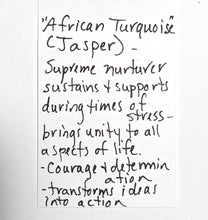 "African Turquoise"
(Jasper) -
Supreme nurturer
sustains & supports
during times of
stress -
brings unity to all
aspects of life.
- Courage & determin
ation
- transforms ideas
into action